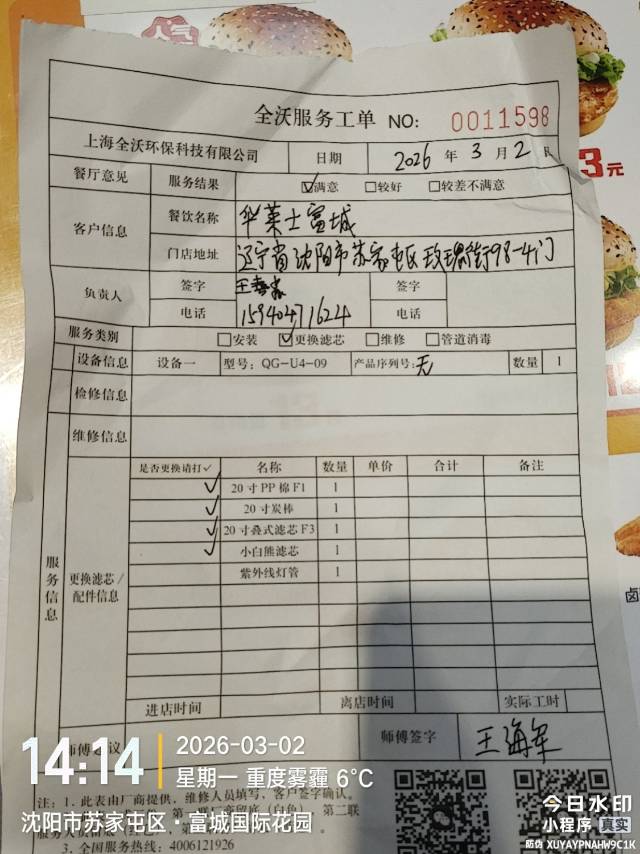 人气
3元
全沃服务工单 NO: 0011598
上海全沃环保科技有限公司 日期 2026 年 3 月 2 日
餐厅意见 服务结果 ☑满意 □较好 □较差不满意
客户信息 餐饮名称 华莱士富城
门店地址 辽宁省沈阳市苏家屯区玫瑰街98-4门
负责人 签字 签字
电话 15940471624 电话
服务类别 □安装 ☑更换滤芯 □维修 □管道消毒
设备信息 设备一 型号: QG-U4-09 产品序列号: 无 数量 1
检修信息
维修信息
服务信息
更换滤芯/配件信息
是否更换请打✓ 名称 数量 单价 合计 备注
✓ 20寸PP棉F1 1
✓ 20寸炭棒 1
✓ 20寸叠式滤芯F3 1
✓ 小白熊滤芯 1
紫外线灯管 1
进店时间 离店时间 实际工时
师傅建议 师傅签字 王海军
注: 1, 此表由厂商提供, 维修人员填写, 客户签字确认。
3, 全国服务热线: 4006121926
14:14
2026-03-02
星期一 重度雾霾 6°C
沈阳市苏家屯区·富城国际花园
今日水印
小程序 真实
防伪 XUYAYPNAHW9C1K